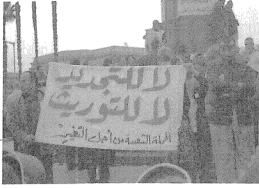 لا للتجديد
لا للتوريث
الحملة الشعبية من أجل التغيير